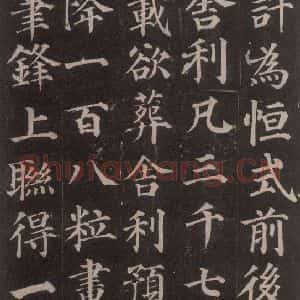 許為恒式前後
舍利凡三千七
載欲葬舍利預
降一百八粒畫
筆鋒上聯得一
Shufawang.CN